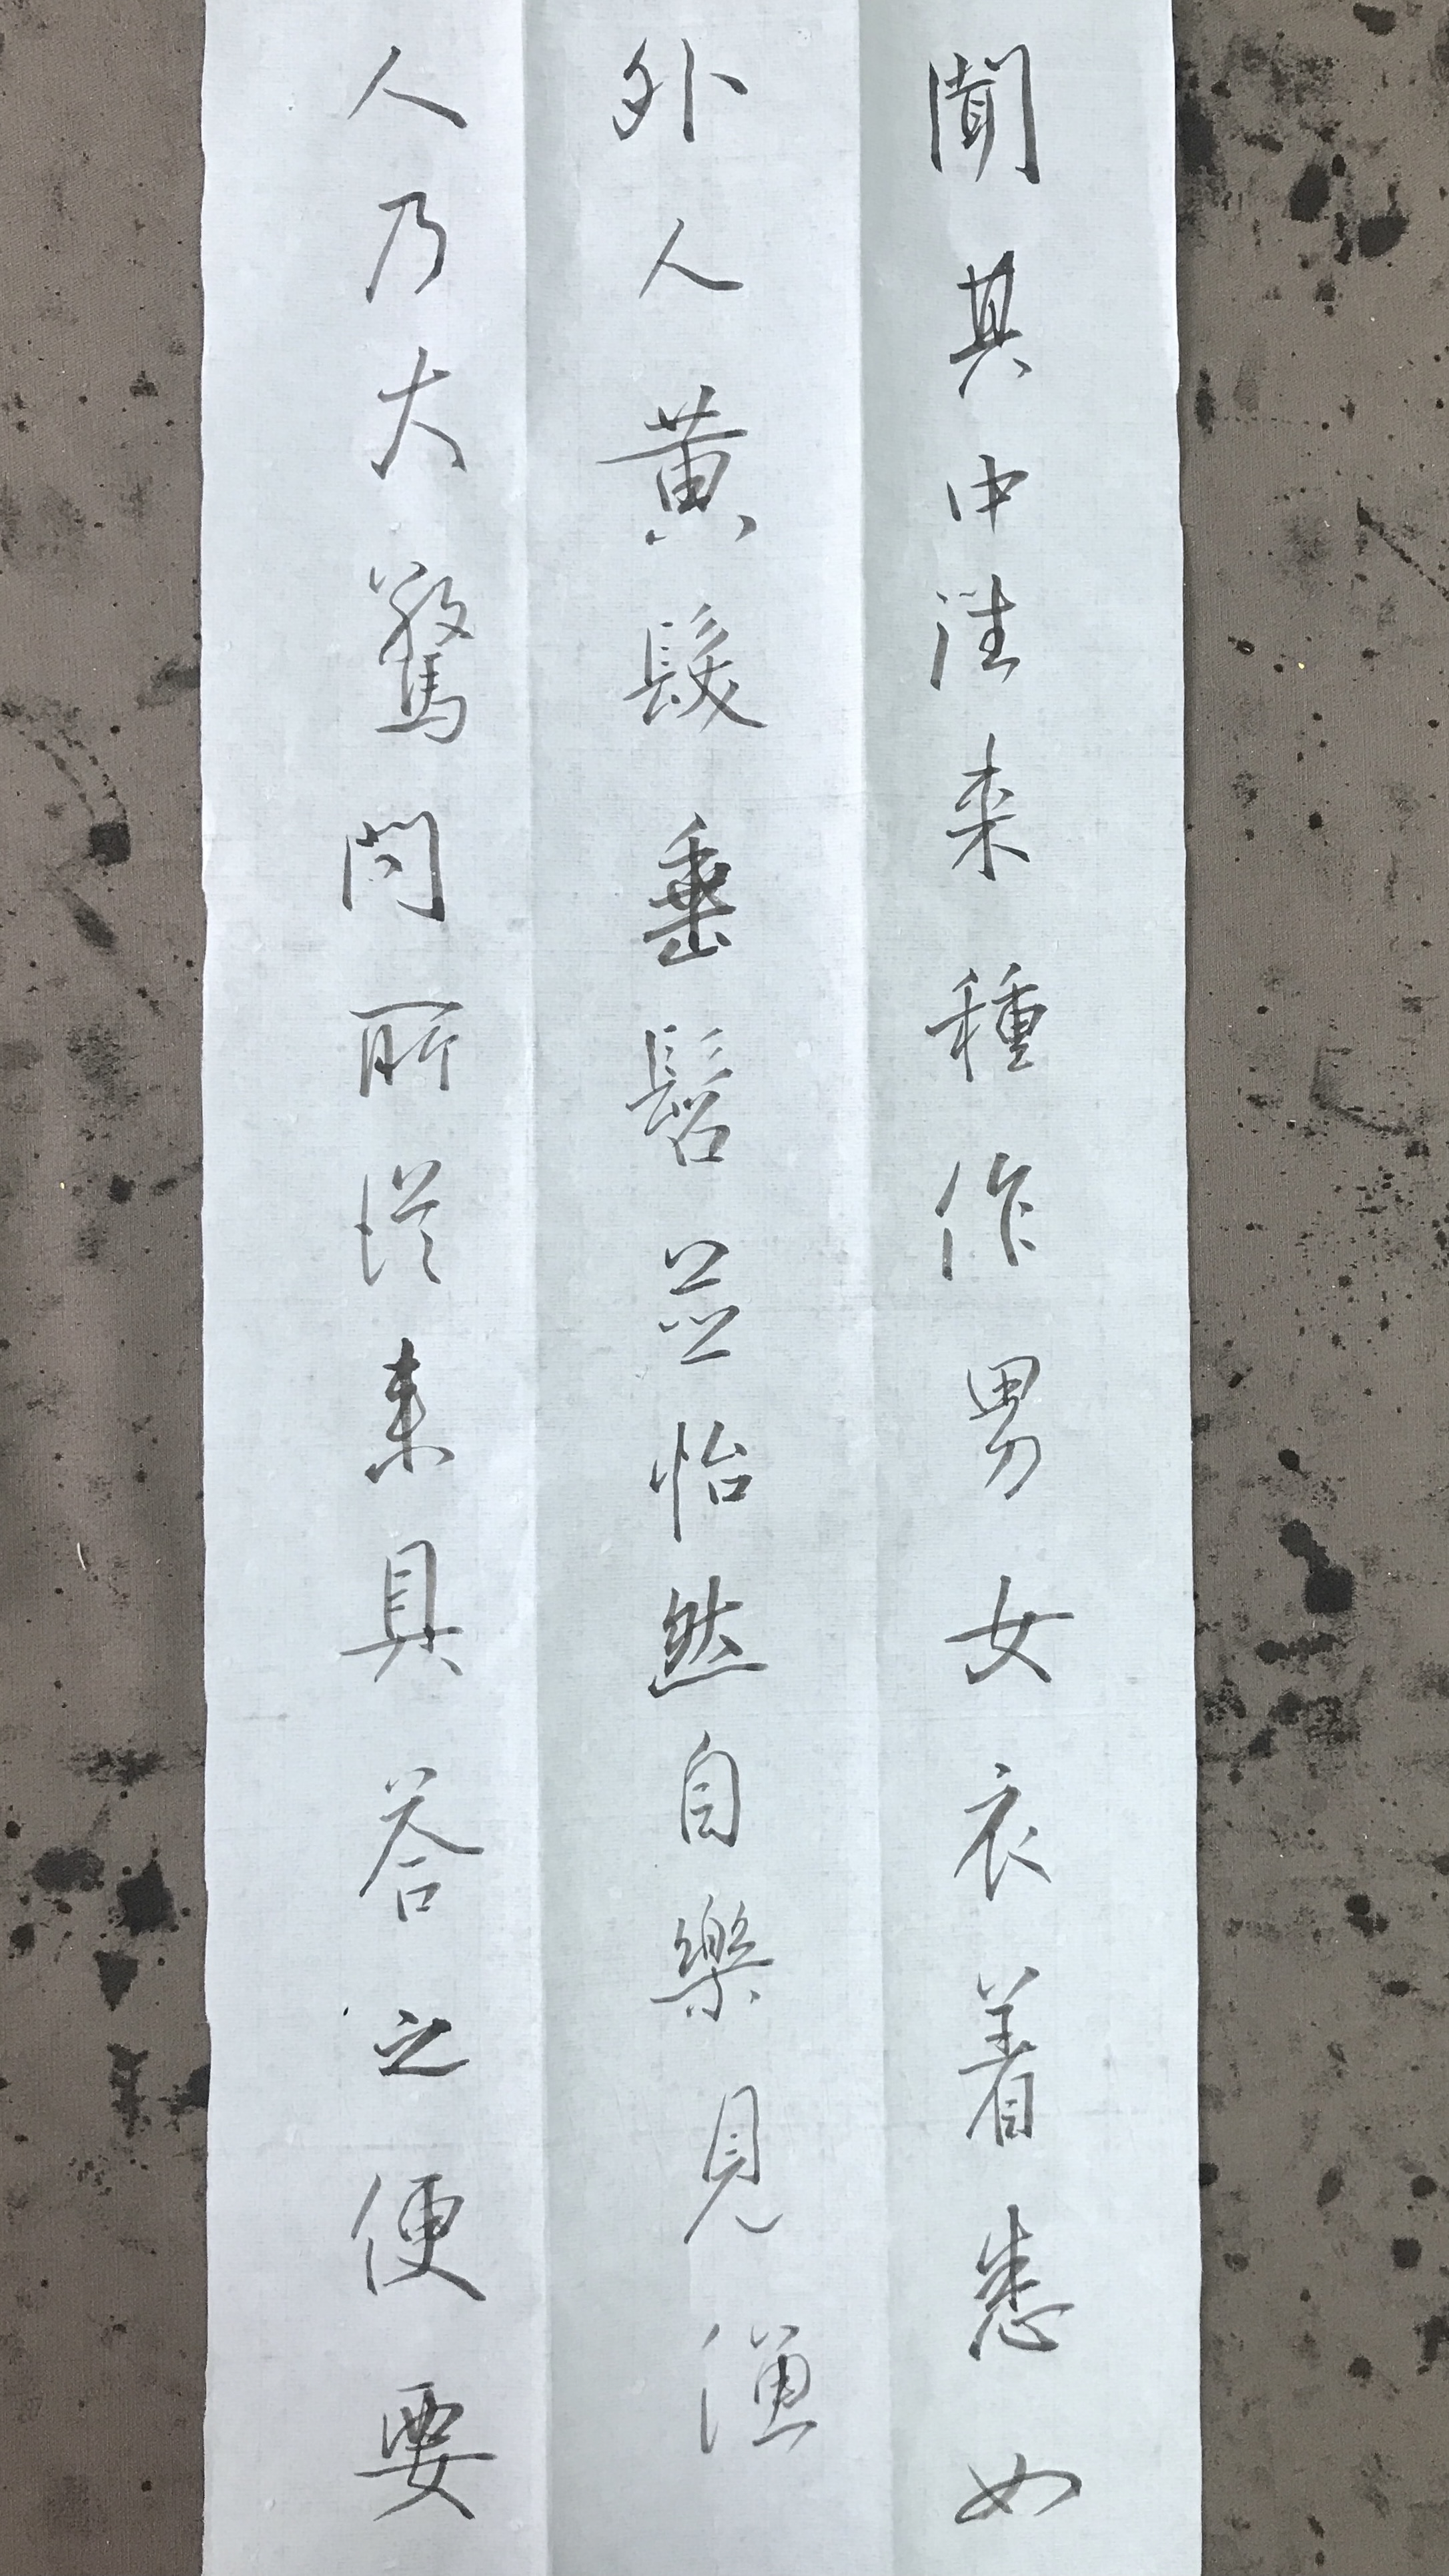 聞其中往来種作男女衣着悉如
外人黄髮垂髫並怡然自樂見漁
人乃大驚問所従来具答之便要